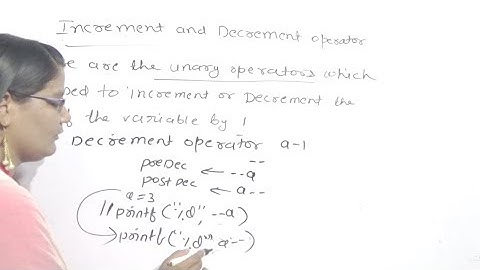 Increment and Decrement operator
e are the unary operators which
ed to increment or Decrement the
the variable by 1
Decrement operator a-1
--
preDec ← --a
postDec ← a--
a=3
//printf("%d", --a)
→printf("%d", a--)